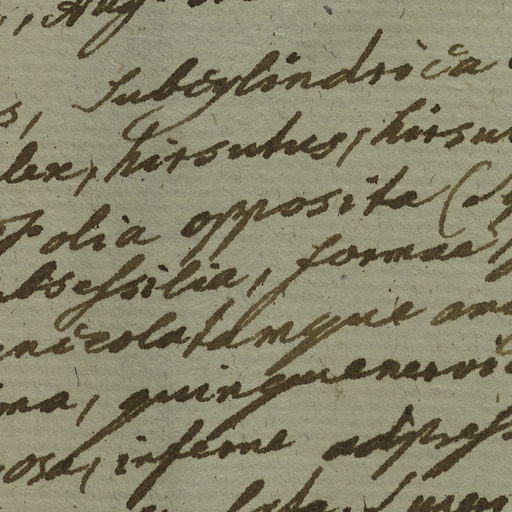 , Aug.
s, Subcylindrica
lex, hirsutus, hirsu
Folia opposita (
ubsessilia, formae
enicolatamque
ma, quinquenervi
osa, inferne adpress